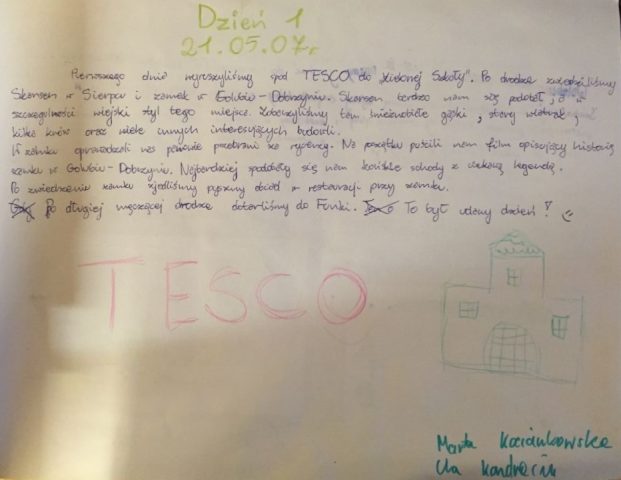 Dzień 1
21.05.07r.
Pierwszego dnia wyruszyliśmy spod TESCO do "Zielonej Szkoły". Po drodze zwiedziliśmy
Skansen w Sierpcu i zamek w Golubiu-Dobrzyniu. Skansen bardzo nam się podobał, a w
szczególności wiejski styl tego miejsca. Zobaczyliśmy tam gąski, stary wiatrak,
kilka oraz wiele innych interesujących budowli.
W zamku oprowadzali nas panowie przebrani za rycerzy. Na początku puścili nam film opisujący historię
zamku w Golubiu-Dobrzyniu. Najbardziej spodobały się nam końskie schody z ciekawą legendą.
Po zwiedzeniu zamku zjedliśmy pyszny obiad w restauracji przy zamku.
Po długiej męczącej drodze dotarliśmy do Funki. To był udany dzień!
TESCO
Marta
Ula